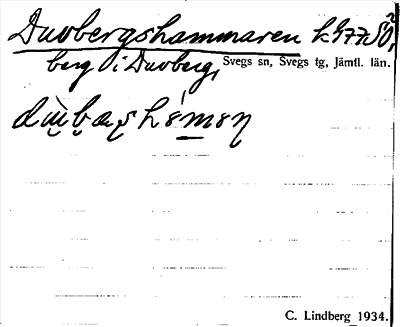 Duvbergshammaren k 477 SÖ,
berg i Duvberg, Svegs sn, Svegs tg, Jämtl. län.
C. Lindberg 1934.